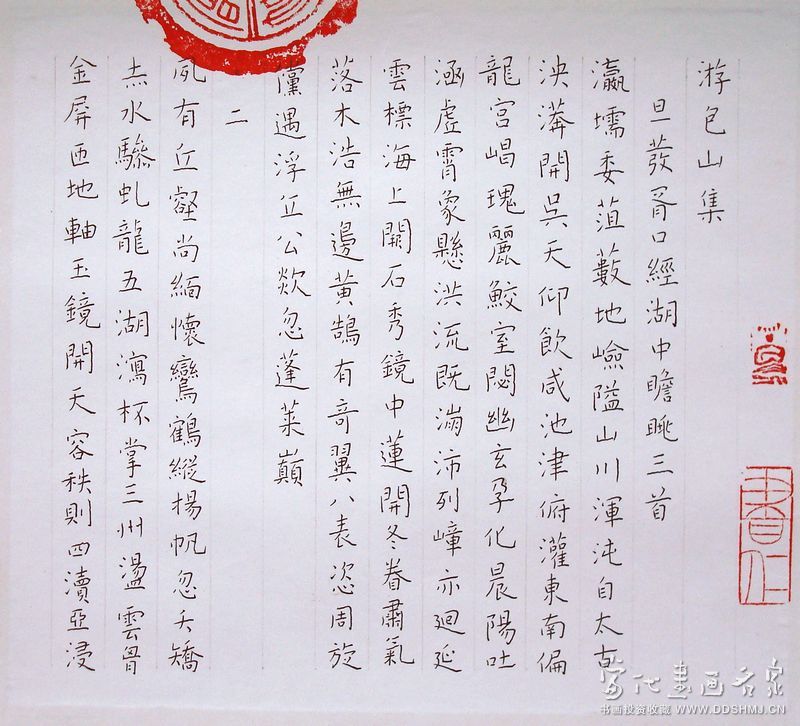 游包山集
旦發胥口經湖中瞻眺三首
瀛壖委菹藪地嶮隘山川渾沌自太古
泱漭開吳天仰飲咸池津俯灌東南偏
龍宮唱瑰麗鮫室閟幽玄孕化晨陽吐
涵虛霄象懸洪流既滂沛列嶂亦迴延
雲標海上闕石秀鏡中蓮開冬眷肅氣
落木浩無邊黃鵠有奇翼八表恣周旋
儻遇浮丘公欻忽蓬萊巔
二
夙有丘壑尚緬懷鸞鶴縱揚帆忽夭矯
水驂虬龍五湖瀉杯掌三州盪雲胷
金屏匝地軸玉鏡開天容秩則四瀆亞浸
当代書画名家
书画投资收藏 WWW.DDSHMJ.CN